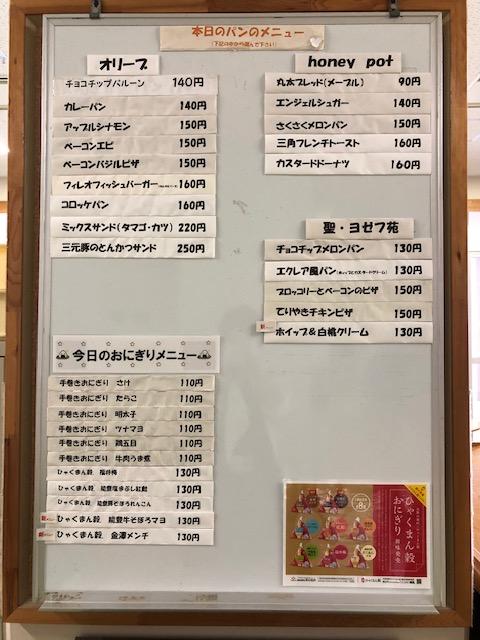 本日のパンのメニュー
(下記の中から選んで下さい)
オリーブ
チョコチップバルーン 140円
カレーパン 140円
アップルシナモン 150円
ベーコンエピ 150円
ベーコンバジルピザ 150円
フィレオフィッシュバーガー 160円
コロッケパン 160円
ミックスサンド(タマゴ・カツ) 220円
三元豚のとんかつサンド 250円
honey pot
丸太ブレッド(メープル) 90円
エンジェルシュガー 140円
さくさくメロンパン 150円
三角フレンチトースト 160円
カスタードドーナツ 160円
聖・ヨゼフ苑
チョコチップメロンパン 130円
エクレア風パン(ホイップとカスタードクリーム) 130円
ブロッコリーとベーコンのピザ 150円
てりやきチキンピザ 150円
ホイップ&白桃クリーム 130円
今日のおにぎりメニュー
手巻きおにぎり さけ 110円
手巻きおにぎり たらこ 110円
手巻きおにぎり 明太子 110円
手巻きおにぎり ツナマヨ 110円
手巻きおにぎり 鶏五目 110円
手巻きおにぎり 牛肉うま煮 110円
ひゃくまん穀 福井梅 130円
ひゃくまん穀 能登塩まぶし紅鮭 130円
ひゃくまん穀 能登豚そぼろれんこん 130円
ひゃくまん穀 能登牛そぼろマヨ 130円
ひゃくまん穀 金澤メンチ 130円
ひゃくまん穀
おにぎり
新味発売
全8種